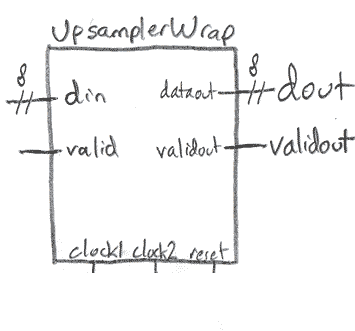 UpsamplerWrap
8 din dataout 8 dout
valid validout validout
clock1 clock2 reset